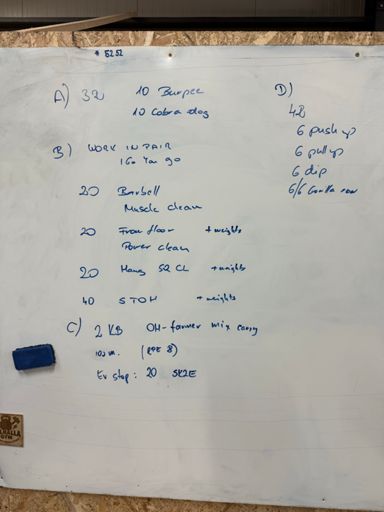 # 5252
A) 3R 10 Burpee
10 Cobra dog
B) WORK IN PAIR
I Go You go
20 Barbell
Muscle clean
20 From floor + weights
Power clean
20 Hang SQ CL + weights
40 STOH + weights
C) 2 KB OH-farmer mix carry
100 m. (RPE 8)
Ev stop: 20
D)
4R
6 push up
6 pull up
6 dip
6/6 Gorilla row
GYM